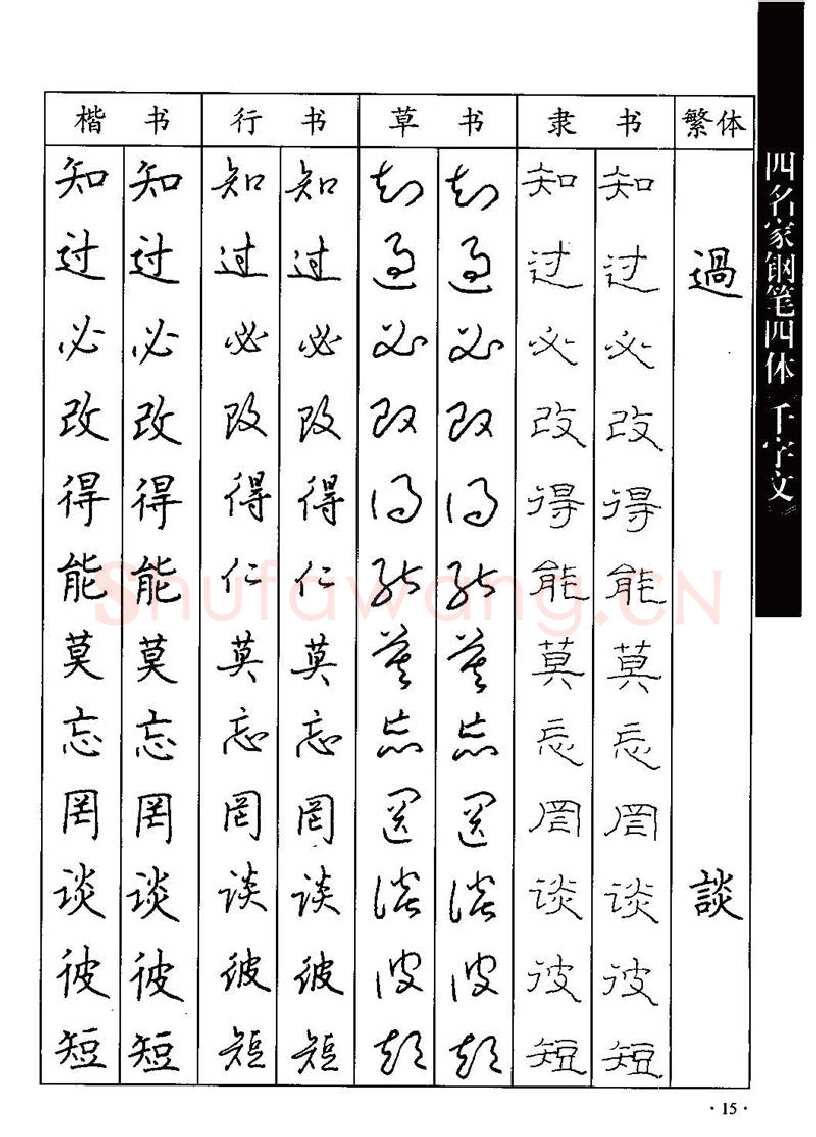 楷 书 行 书 草 书 隶 书 繁体
知 知 知 知 知 知 知 知
过 过 过 过 过 过 过 过 過
必 必 必 必 必 必 必 必
改 改 改 改 改 改 改 改
得 得 得 得 得 得 得 得
能 能 仁 仁 能 能 能 能
莫 莫 莫 莫 莫 莫 莫 莫
忘 忘 忘 忘 忘 忘 忘 忘
罔 罔 罔 罔 罔 罔 罔 罔
谈 谈 谈 谈 谈 谈 谈 谈 談
彼 彼 彼 彼 彼 彼 彼 彼
短 短 短 短 短 短 短 短
四名家钢笔四体《千字文》
Shufawang.CN
·15·